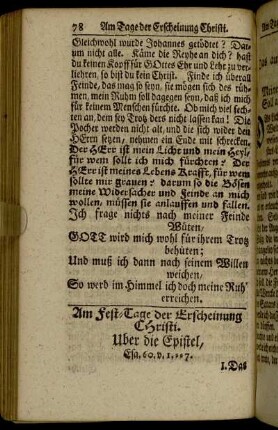 78 Am Tage der Erscheinung Christi.
Gleichwohl wurde Johannes getödtet? Dar-
um nicht alle. Käme die Reyhe an dich? hast
du keinen Kopff für GOttes Ehr und Lehr zu ver-
liehren, so bist du kein Christ. Finde ich überall
Feinde, das mag so seyn, sie mögen sich des rüh-
men, mein Ruhm soll dagegen seyn, daß ich mich
für keinem Menschen fürchte. Ob mich viel hech-
ten an, dem sey Trotz ders nicht lassen kan! Die
Pocher werden nicht alt, und die sich wider den
HErrn setzen, nehmen ein Ende mit schrecken.
Der HErr ist mein Licht und mein Heyl,
für wem solt ich mich fürchten? Der
HErr ist meines Lebens Krafft, für wem
solte mir grauen? darum so die Bösen
meine Widersacher und Feinde an mich
wollen, müssen sie anlauffen und fallen.
Ich frage nichts nach meiner Feinde
Wüten,
GOTT wird mich wohl für ihrem Trotz
behüten;
Und muß ich dann nach seinem Willen
weichen,
So werd im Himmel ich doch meine Ruh'
erreichen.
Am Fest-Tage der Erscheinung
CHristi.
Uber die Epistel,
Esa. 60. v. 1.
1. Das